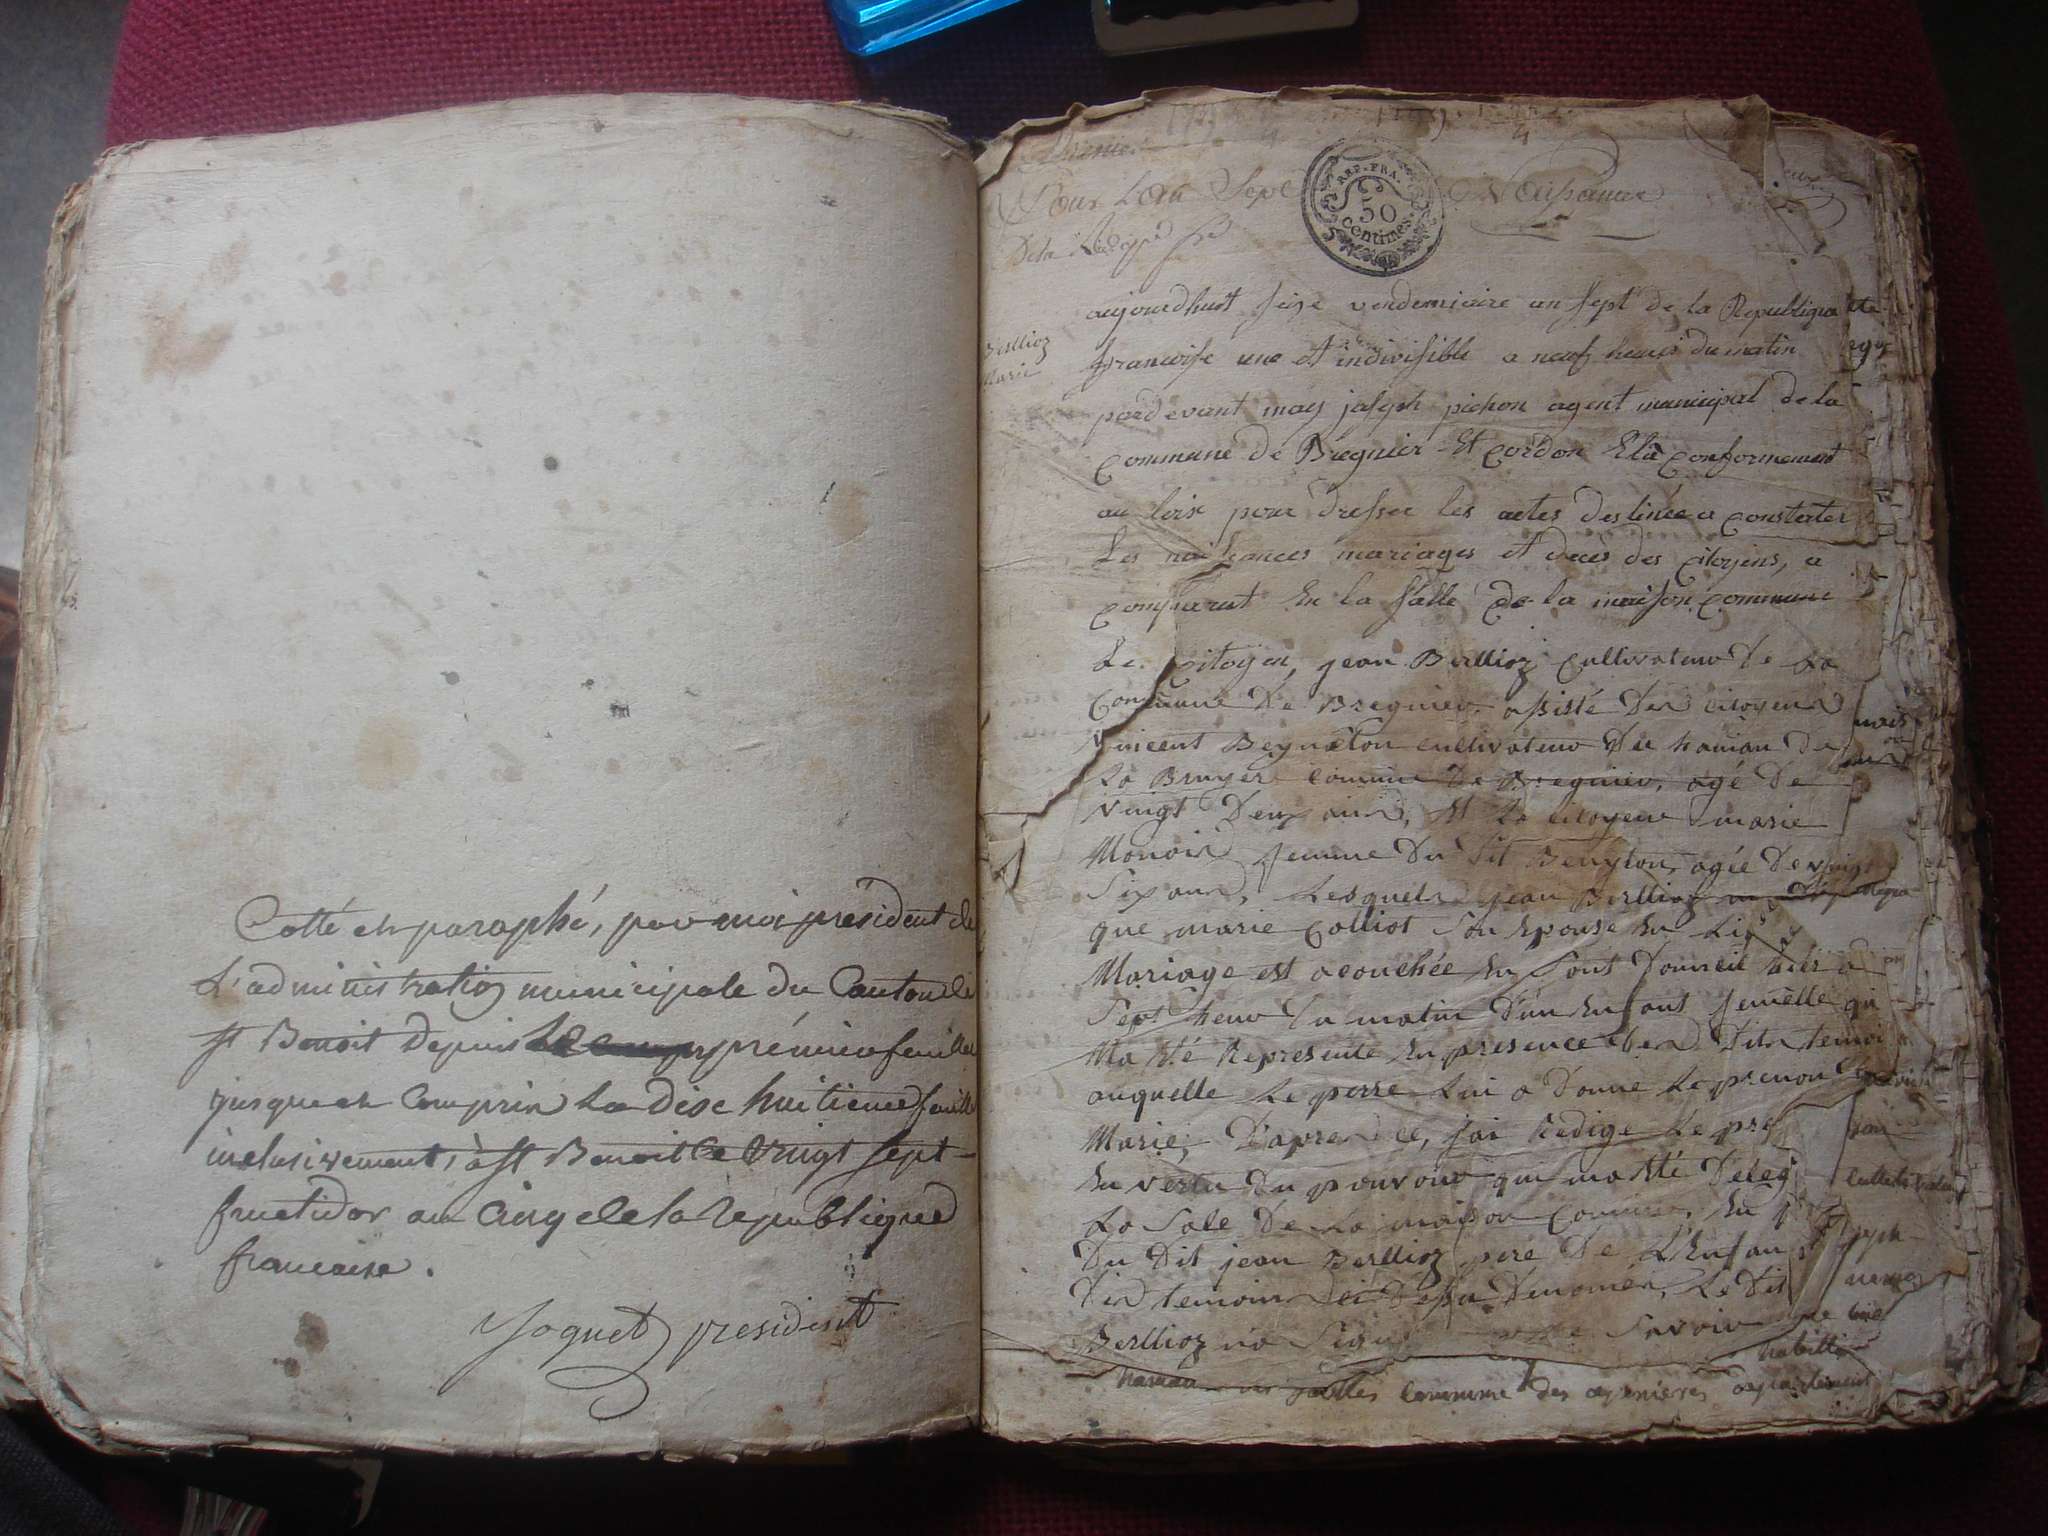 Cotté et paraphé, par moi président de
L'administration municipale du Canton de
st Benoit depuis le premier feuillet
jusque et Comprix La dix huitieme feuille
inclusivement, à st Benoit le vingt sept
fructidor an Cinq de la République
francaise.
Joguet president
premier
Pour L'an Sept
Naissance
De la Rép
REP. FRA.
50
Centimes.
Berllioz
Marie
aujourdhuit seise vendemiaire an sept de la Republique
francoise une et indivisible a neuf heures du matin
pardevant moy joseph pichon agent municipal de la
commune de Bregnier et cordon Elu conformement
au loix pour dresser les actes destinée a constater
Les naissances mariages et decès des citoyens, a
comparut En la salle de la maison commune
Le citoyen jean Berllioz cultivateur de La
Commune De Bregnier assisté Des citoyens
vincent Beyneton cultivateur du hamau De
La Bruyere commune De Bregnier, agé De
vingt Deux ans, Et La citoyene marie
Monoir femme Du Dit Benyton, agée De vingt
Six ans, Lesquels jean Berllioz
que marie Colliot Son Epouse En
Mariage est acouchée En Sont Domcil hier a
Sept heur Du matin D'un Enfant femelle qui
Ma Eté Represente En presence Des Dits temoi
auquelle Le perre Lui a Donne Le prenon
Marie, D'apres Ce, jai Redige Le pres
En vertu Du pouvoir qui ma Eté Deleg
La Sale De La maison Commune, En
Du Dit jean Berllioz pere De L'Enfan
Des temoins Denomén, Le Dit
Berllioz na Signé Savoir
hameau commune des departement